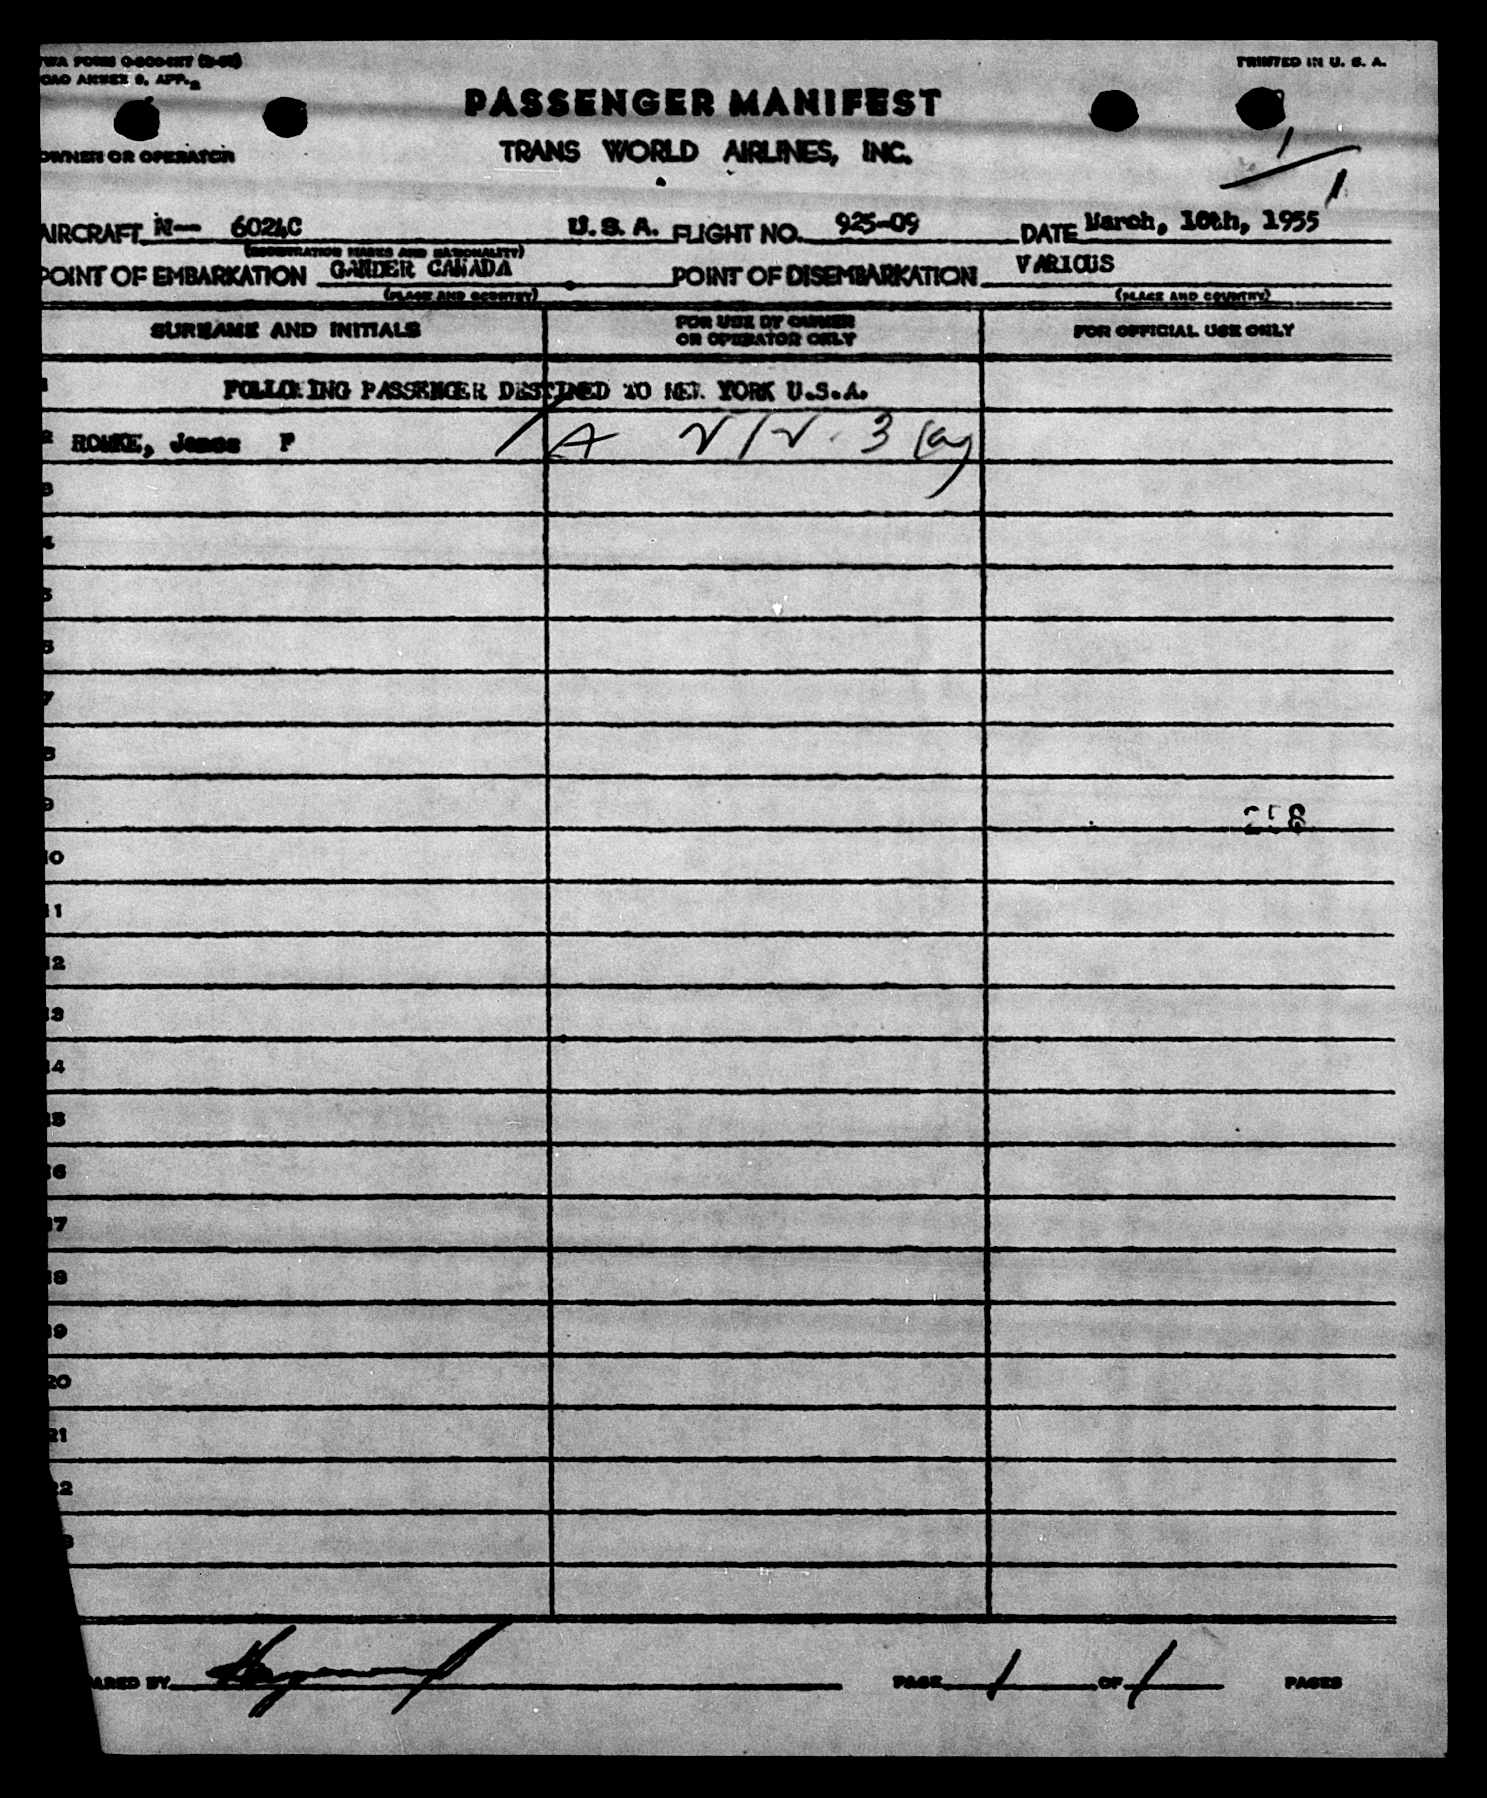 PRINTED IN U. S. A.
PASSENGER MANIFEST
OWNER OR OPERATOR TRANS WORLD AIRLINES, INC.
1
1
AIRCRAFT N-- 6024C U.S.A. FLIGHT NO. 925-09 DATE March, 10th, 1955
(REGISTRATION MARKS AND NATIONALITY)
POINT OF EMBARKATION GANDER CANADA POINT OF DISEMBARKATION VARIOUS
(PLACE AND COUNTRY) (PLACE AND COUNTRY)
SURNAME AND INITIALS FOR USE BY OWNER OR OPERATOR ONLY FOR OFFICIAL USE ONLY
1 FOLLOWING PASSENGER DESTINED TO NEW YORK U.S.A.
2 James F
3
4
5
6
7
8
9 258
10
11
12
13
14
15
16
17
18
19
20
21
22
3
ARED BY PAGE 1 OF 1 PAGES